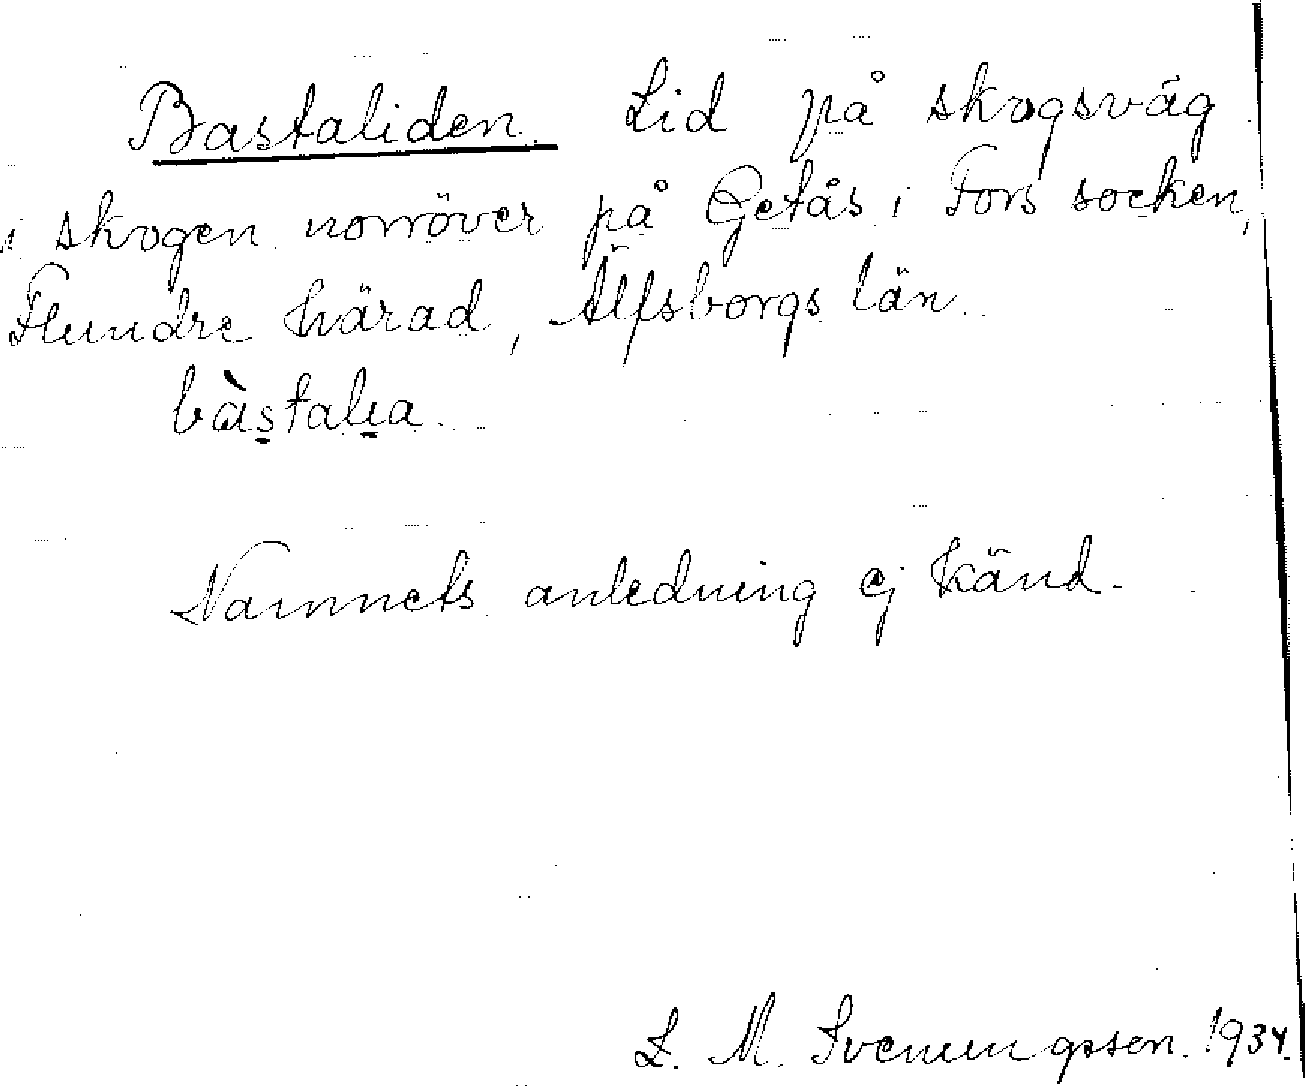 Bastaliden. Lid på skogsväg
i skogen norröver på Getås i Fors socken,
Flundre härad, Älfsborgs län.
bàstalia.
Namnets anledning ej känd.
L. M. Svenungsson. 1934.